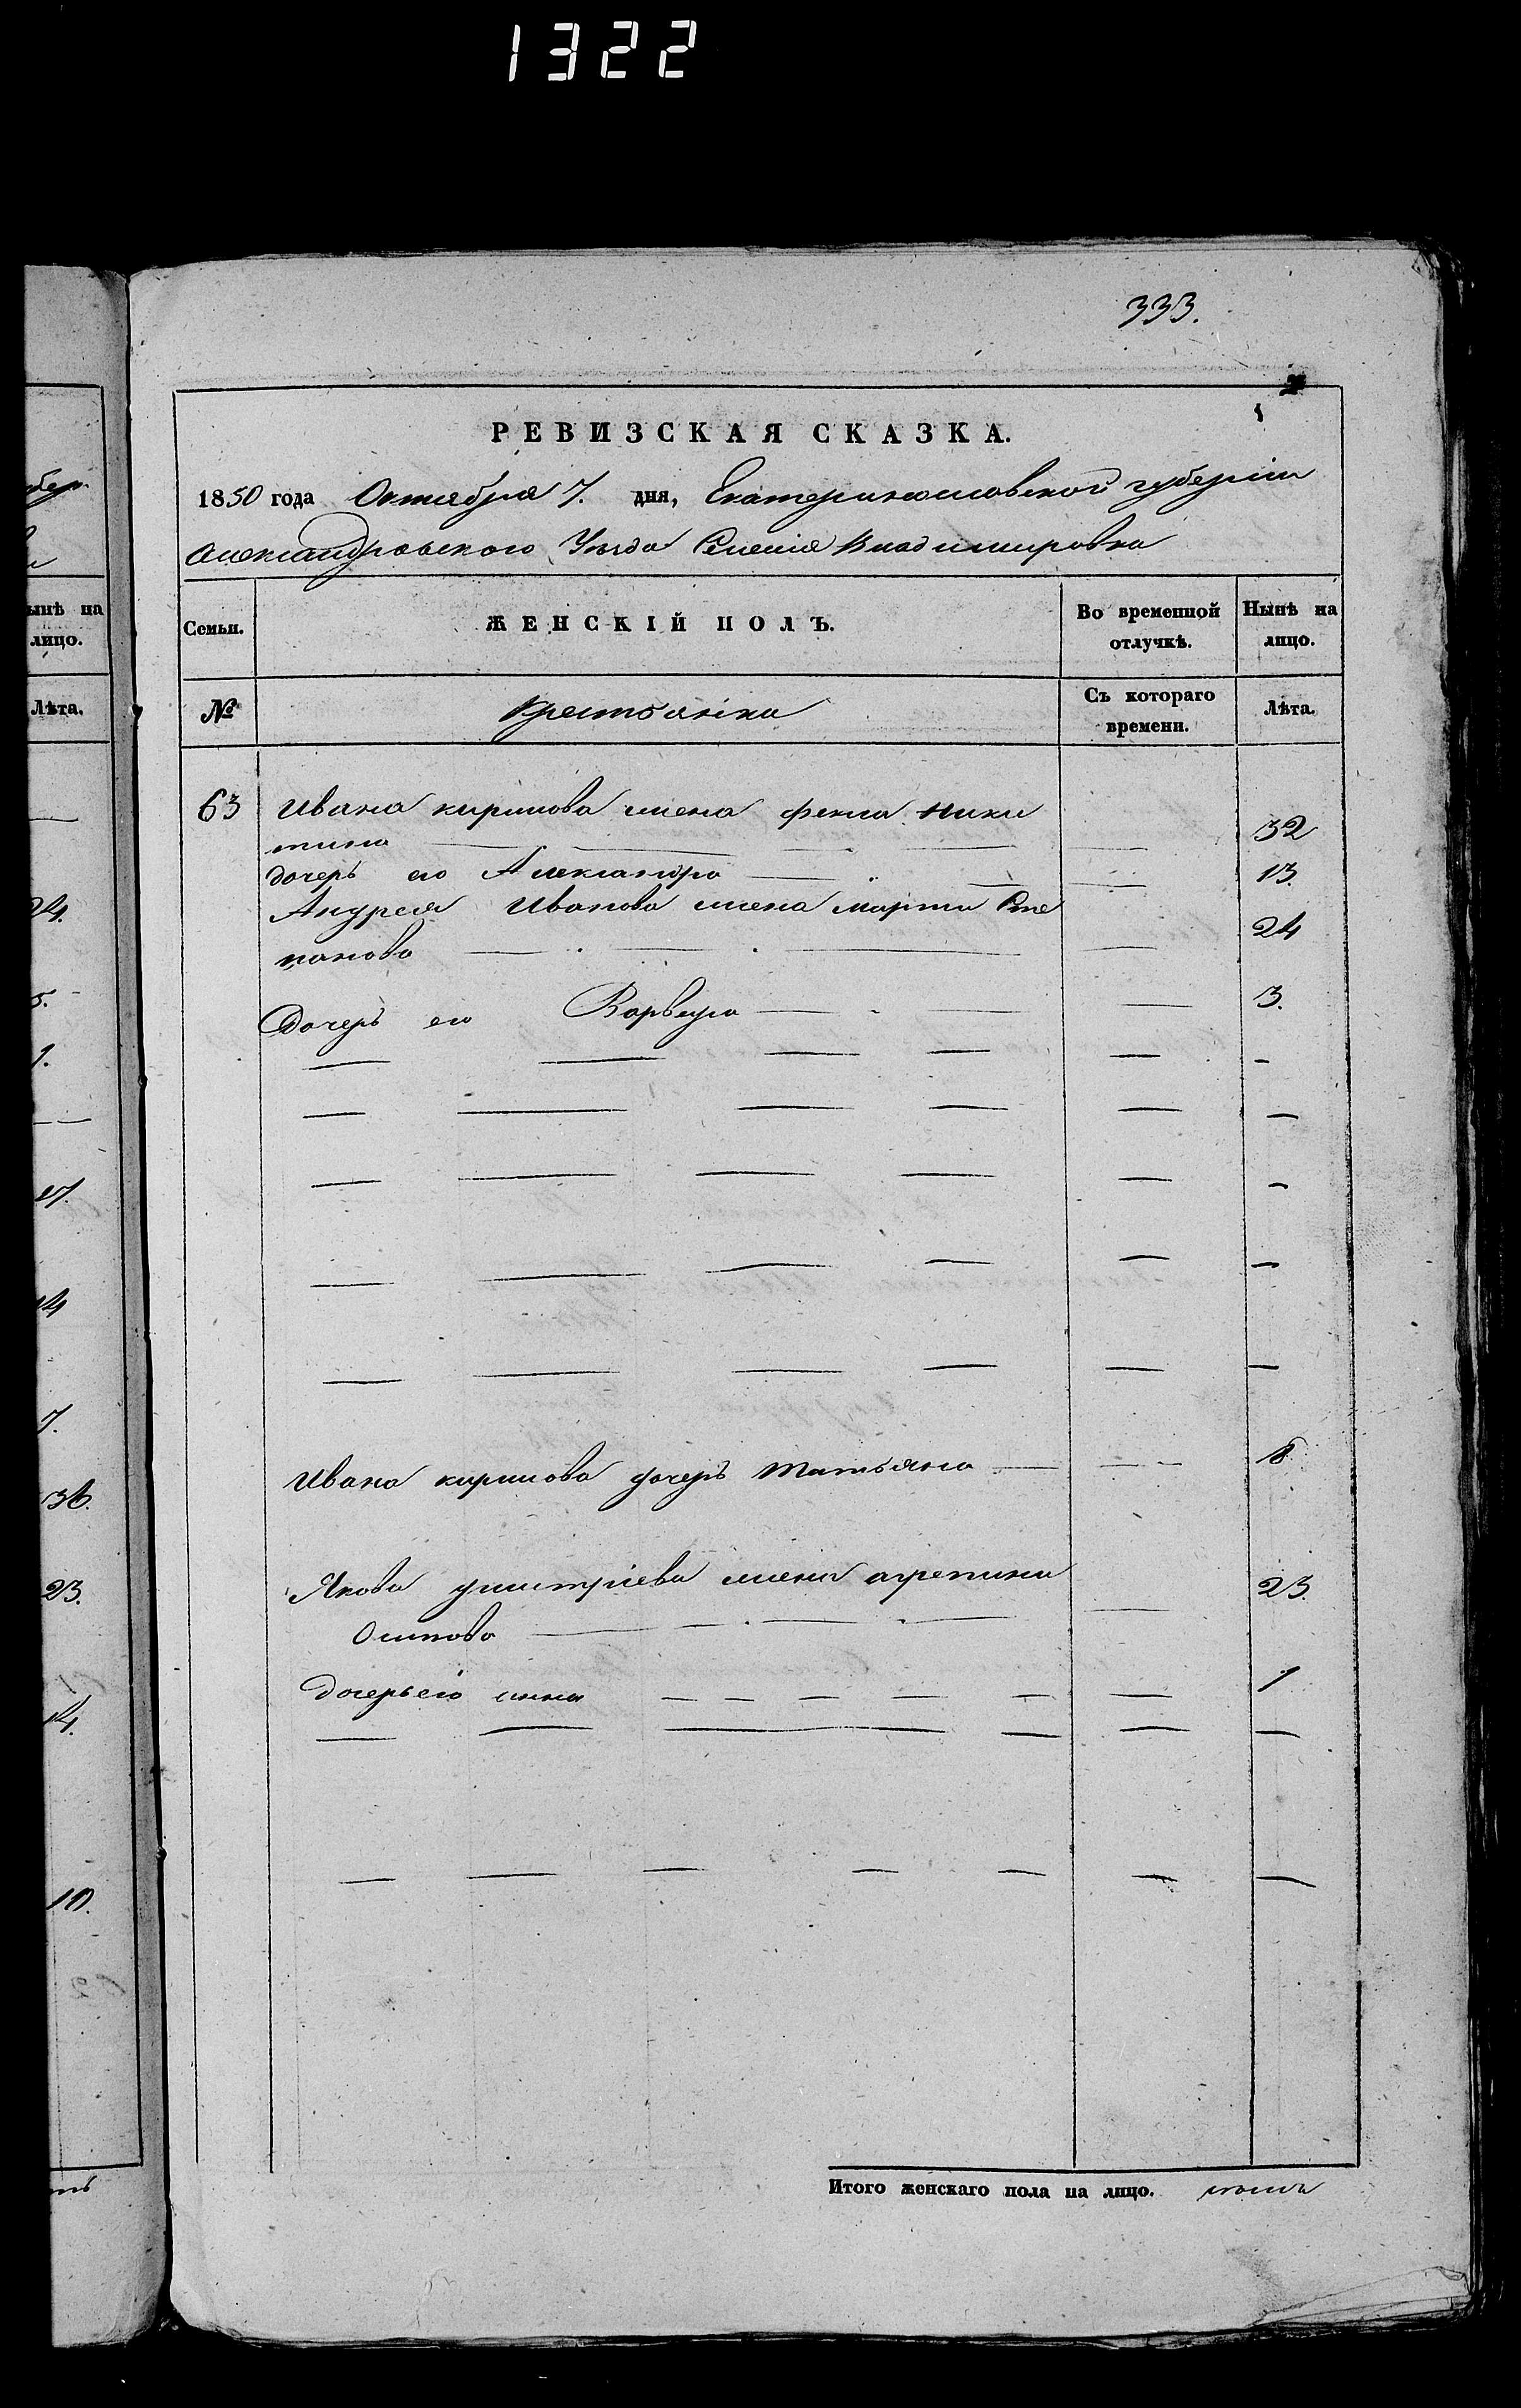 1322
333.
РЕВИЗСКАЯ СКАЗКА.
1850 года Октября 7. дня, Екатеринославской губерніи
Александровского Уезда Селенія Владимировка
Семьи. ЖЕНСКІЙ ПОЛЪ. Во временной отлучкѣ. Нынѣ на лицо.
№ Крестьянка Съ котораго времени. Лѣта.
63 Ивана кирилова жена фекла Ники
тина 32
дочерь его Александра 13.
Андрея Иванова жена марта Сте
панова 24
Дочерь его Варвара 3.
Ивана кирилова дочерь татьяна 8
Якова дмитріева жена агрепина 23.
Осипова
дочерь его анна 1
Итого женскаго пола на лицо.
ынѣ на
лицо.
Лѣта.
24.
5.
1.
27.
14
7.
36.
23.
14.
10.